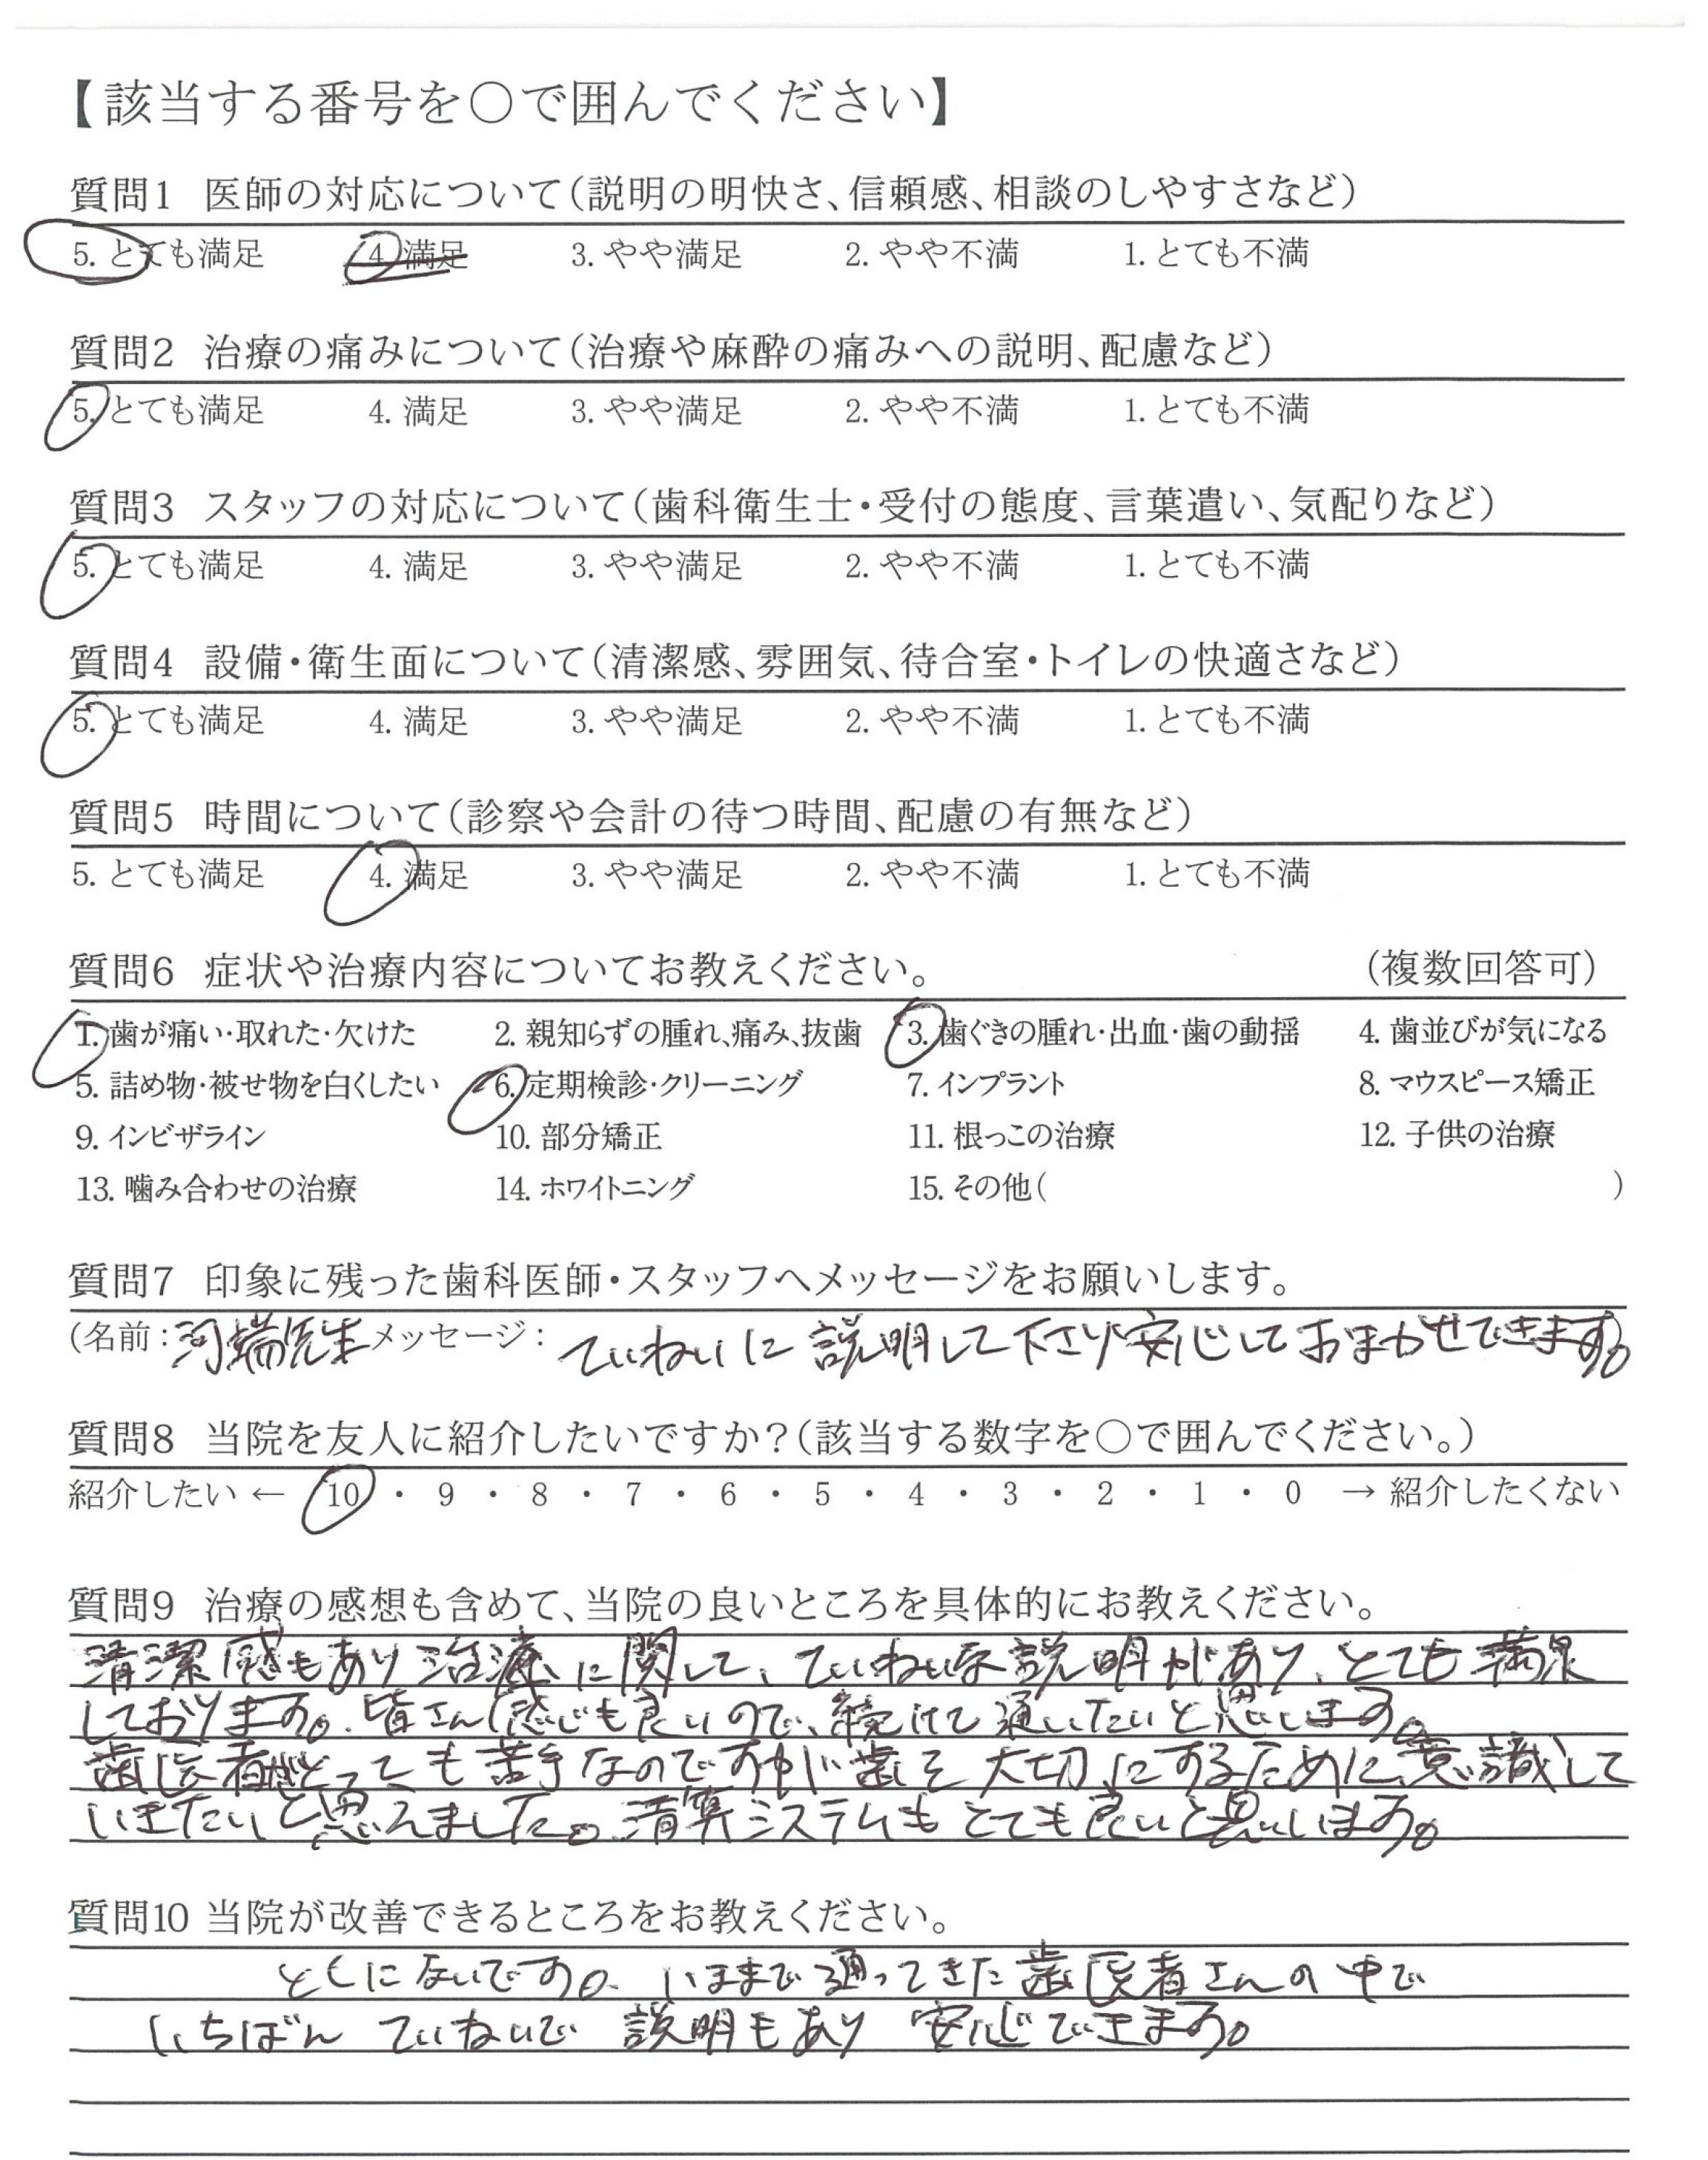 【該当する番号を○で囲んでください】
質問1 医師の対応について（説明の明快さ、信頼感、相談のしやすさなど）
5. とても満足 4. 満足 3. やや満足 2. やや不満 1. とても不満
質問2 治療の痛みについて（治療や麻酔の痛みへの説明、配慮など）
5. とても満足 4. 満足 3. やや満足 2. やや不満 1. とても不満
質問3 スタッフの対応について（歯科衛生士・受付の態度、言葉遣い、気配りなど）
5. とても満足 4. 満足 3. やや満足 2. やや不満 1. とても不満
質問4 設備・衛生面について（清潔感、雰囲気、待合室・トイレの快適さなど）
5. とても満足 4. 満足 3. やや満足 2. やや不満 1. とても不満
質問5 時間について（診察や会計の待つ時間、配慮の有無など）
5. とても満足 4. 満足 3. やや満足 2. やや不満 1. とても不満
質問6 症状や治療内容についてお教えください。 （複数回答可）
1. 歯が痛い・取れた・欠けた 2. 親知らずの腫れ、痛み、抜歯 3. 歯ぐきの腫れ・出血・歯の動揺 4. 歯並びが気になる
5. 詰め物・被せ物を白くしたい 6. 定期検診・クリーニング 7. インプラント 8. マウスピース矯正
9. インビザライン 10. 部分矯正 11. 根っこの治療 12. 子供の治療
13. 噛み合わせの治療 14. ホワイトニング 15. その他（ ）
質問7 印象に残った歯科医師・スタッフへメッセージをお願いします。
（名前：河端先生 メッセージ： ていねいに説明して下さり安心しておまかせできます。
質問8 当院を友人に紹介したいですか？（該当する数字を○で囲んでください。）
紹介したい ← 10 ・ 9 ・ 8 ・ 7 ・ 6 ・ 5 ・ 4 ・ 3 ・ 2 ・ 1 ・ 0 → 紹介したくない
質問9 治療の感想も含めて、当院の良いところを具体的にお教えください。
清潔感もあり治療に関して、ていねいな説明があり、とても満足
しております。皆さん感じも良いので、続けて通いたいと思います。
歯医者がとっても苦手なのですが歯を大切にするために意識して
いきたいと思えました。清算システムもとても良いと思います。
質問10 当院が改善できるところをお教えください。
とくにないです。いままで通ってきた歯医者さんの中で
いちばん ていねいで 説明もあり 安心できます。